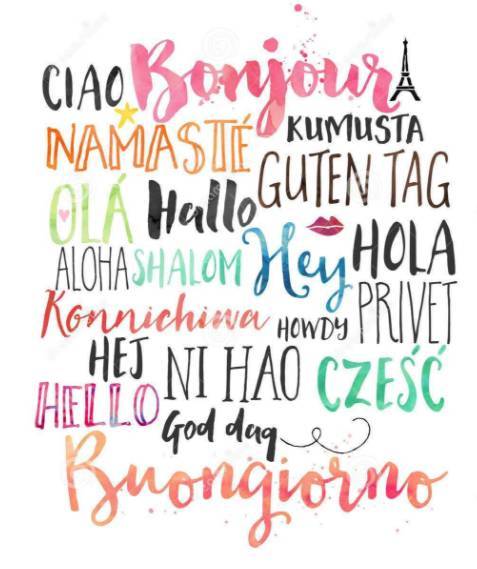 CIAO Bonjour
NAMASTÉ KUMUSTA
GUTEN TAG
OLÁ Hallo
HOLA
ALOHA SHALOM Hey
Konnichiwa HOWDY PRIVET
HEJ NI HAO CZEŚĆ
HELLO
God dag
Buongiorno